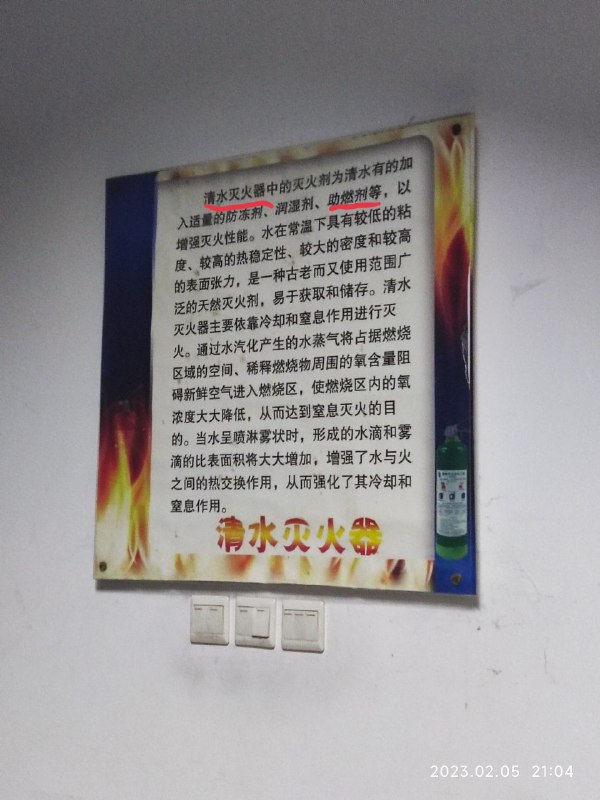 清水灭火器中的灭火剂为清水有的加
入适量的防冻剂、润湿剂、助燃剂等，以
增强灭火性能。水在常温下具有较低的粘
度、较高的热稳定性、较大的密度和较高
的表面张力，是一种古老而又使用范围广
泛的天然灭火剂，易于获取和储存。清水
灭火器主要依靠冷却和窒息作用进行灭
火。通过水汽化产生的水蒸气将占据燃烧
区域的空间、稀释燃烧物周围的氧含量阻
碍新鲜空气进入燃烧区，使燃烧区内的氧
浓度大大降低，从而达到窒息灭火的目
的。当水呈喷淋雾状时，形成的水滴和雾
滴的比表面积将大大增加，增强了水与火
之间的热交换作用，从而强化了其冷却和
窒息作用。
清水灭火器
2023.02.05 21:04